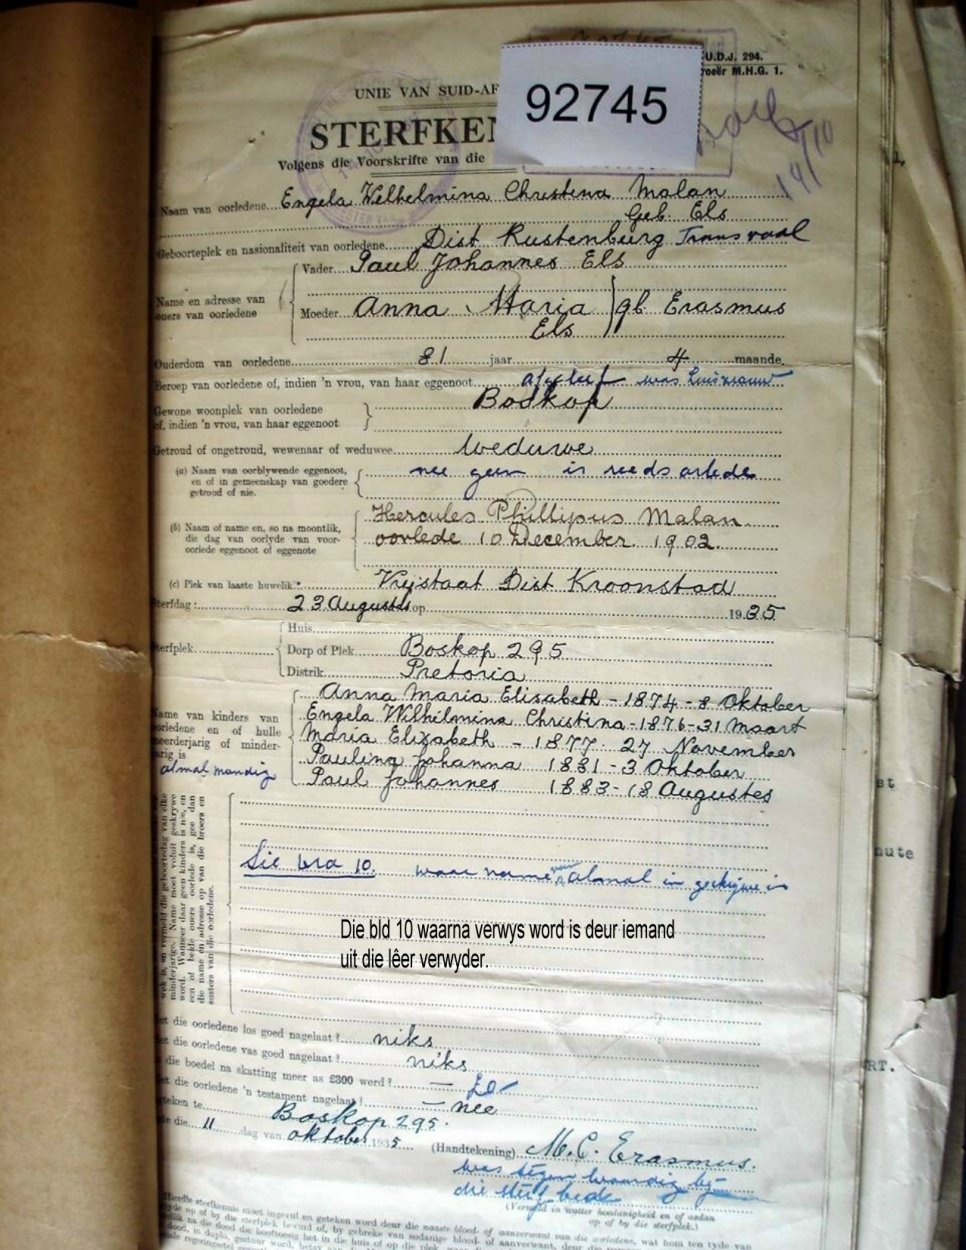 U.D.J. 294.
M.H.G. 1.
92745
UNIE VAN SUID-AF
STERFKEN
Volgens die Voorskrifte van die
14/10
Naam van oorledene Engela Wilhelmina Christina Malan
Geb. Els
Geboorteplek en nasionaliteit van oorledene Dist Rustenburg Transvaal
Name en adresse van ouers van oorledene
Vader Paul Johannes Els
Moeder Anna Maria Els } gb Erasmus
Ouderdom van oorledene 81 jaar 4 maande
Beroep van oorledene of, indien 'n vrou, van haar eggenoot was huisvrouw
Gewone woonplek van oorledene
of, indien 'n vrou, van haar eggenoot } Boskop
Getroud of ongetroud, wewenaar of weduwee Weduwe
(a) Naam van oorblywende eggenoot,
en of in gemeenskap van goedere
getroud of nie.
nee geen is reeds orlede
(b) Naam of name en, so na moontlik,
die dag van oorlyde van voor-
oorlede eggenoot of eggenote
Hercules Phillipus Malan
oorlede 10 December 1902
(c) Plek van laaste huwelik Vrijstaat Dist Kroonstad
Sterfdag: 23 Augustus op 1935
Sterfplek
Huis
Dorp of Plek Boskop 295
Distrik Pretoria
Name van kinders van
oorledene en of hulle
meerderjarig of minder-
jarig is
almal mondig
Anna Maria Elisabeth - 1874 - 8 Oktober
Engela Wilhilmina Christina - 1876 - 31 Maart
Maria Elizabeth - 1877 27 November
Paulina Johanna 1881 - 3 Oktober
Paul Johannes 1883 - 18 Augustes
minderjarige. Name moet voluit geskrywe
word. Wanneer daar geen kinders is nie, en
een of beide ouers oorlede is, gee dan
die name en adresse op van die broers en
susters van die oorledene.
Sie bra 10. waar name almal in is
Die bld 10 waarna verwys word is deur iemand
uit die lêer verwyder.
et die oorledene los goed nagelaat? niks
et die oorledene vas goed nagelaat? niks
die boedel na skatting meer as £300 werd? —
et die oorledene 'n testament nagelaat? — nee
teken te Boskop 295.
die 11 dag van oktober 1935
(Handtekening) M. C. Erasmus.
was bij
die
op of by die sterfplek.)